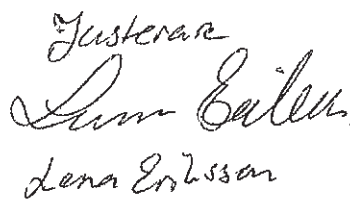 Justerare
Lena Eriksson
Lena Eriksson